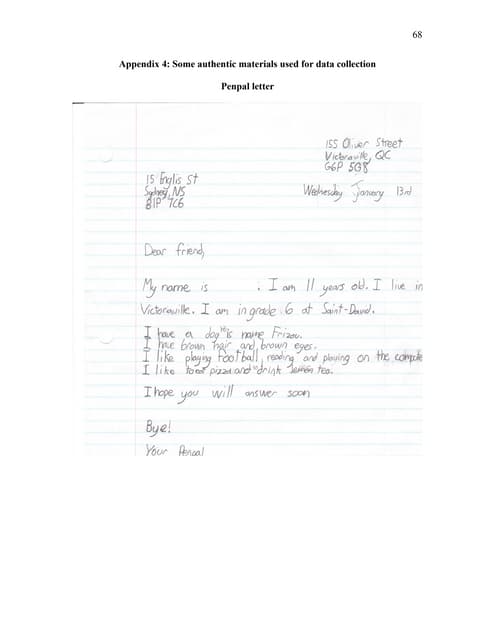 68
Appendix 4: Some authentic materials used for data collection
Penpal letter
155 Oliver Street
Victoriaville, QC
G6P 5G8
15 Englis St
Sydney, NS
B1P 7C6
Wednesday January 13rd
Dear friend,
My name is . I am 11 years old. I live in
Victoriaville. I am in grade 6 at Saint-David.
I have a dog his name Frizou.
I have brown hair and brown eyes.
I like playing football, reading and playing on the compute
I like to eat pizza and drink lemon tea.
I hope you will answer soon
Bye!
Your Penpal